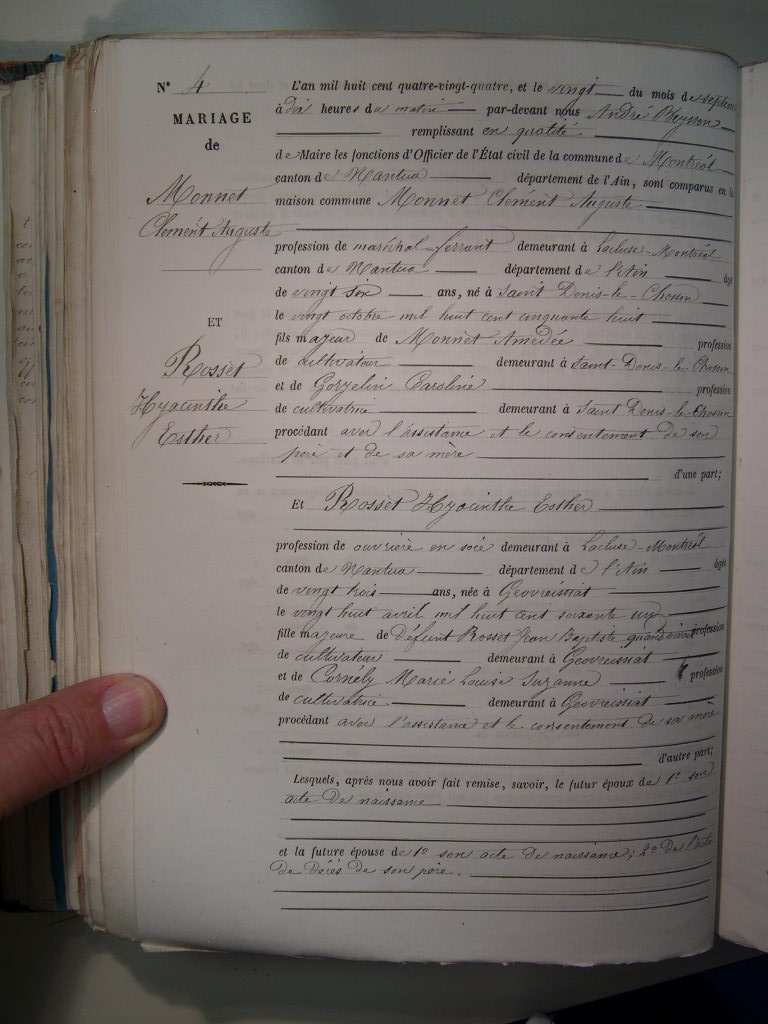 N° 4
MARIAGE
de
Monnet
Clément Auguste
ET
Rosset
Hyacinthe
Esther
L'an mil huit cent quatre-vingt-quatre, et le vingt du mois de septem
à dix heures du matin par-devant nous André
remplissant en qualité
de Maire les fonctions d'Officier de l'État civil de la commune de Montréal
canton de Nantua département de l'Ain, sont comparus en la
maison commune Monnet Clément Auguste
profession de maréchal-ferrant demeurant à Lacluse-Montréal
canton de Nantua département de l'Ain âgé
de vingt six ans, né à Saint Denis-le-Chosson
le vingt octobre mil huit cent cinquante huit
fils majeur de Monnet Amédée profession
de cultivateur demeurant à Saint-Denis-le-Chosson
et de Gorzelin Caroline profession
de cultivatrice demeurant à Saint Denis-le-Chosson
procédant avec l'assistance et le consentement de son
père et de sa mère
d'une part;
Et Rosset Hyacinthe Esther
profession de ouvrière en soie demeurant à Lacluse-Montréal
canton de Nantua département de l'Ain âgée
de vingt trois ans, née à Geovreissiat
le vingt huit avril mil huit cent soixante un
fille majeure de Défunt Rosset Jean Baptiste quand vivait profession
de cultivateur demeurant à Geovreissiat
et de Cornély Marie Louise Suzanne profession
de cultivatrice demeurant à Geovreissiat
procédant avec l'assistance et le consentement de sa mère
d'autre part;
Lesquels, après nous avoir fait remise, savoir, le futur époux de 1° son
acte de naissance
et la future épouse de 1° son acte de naissance; 2° de l'acte
de décès de son père.